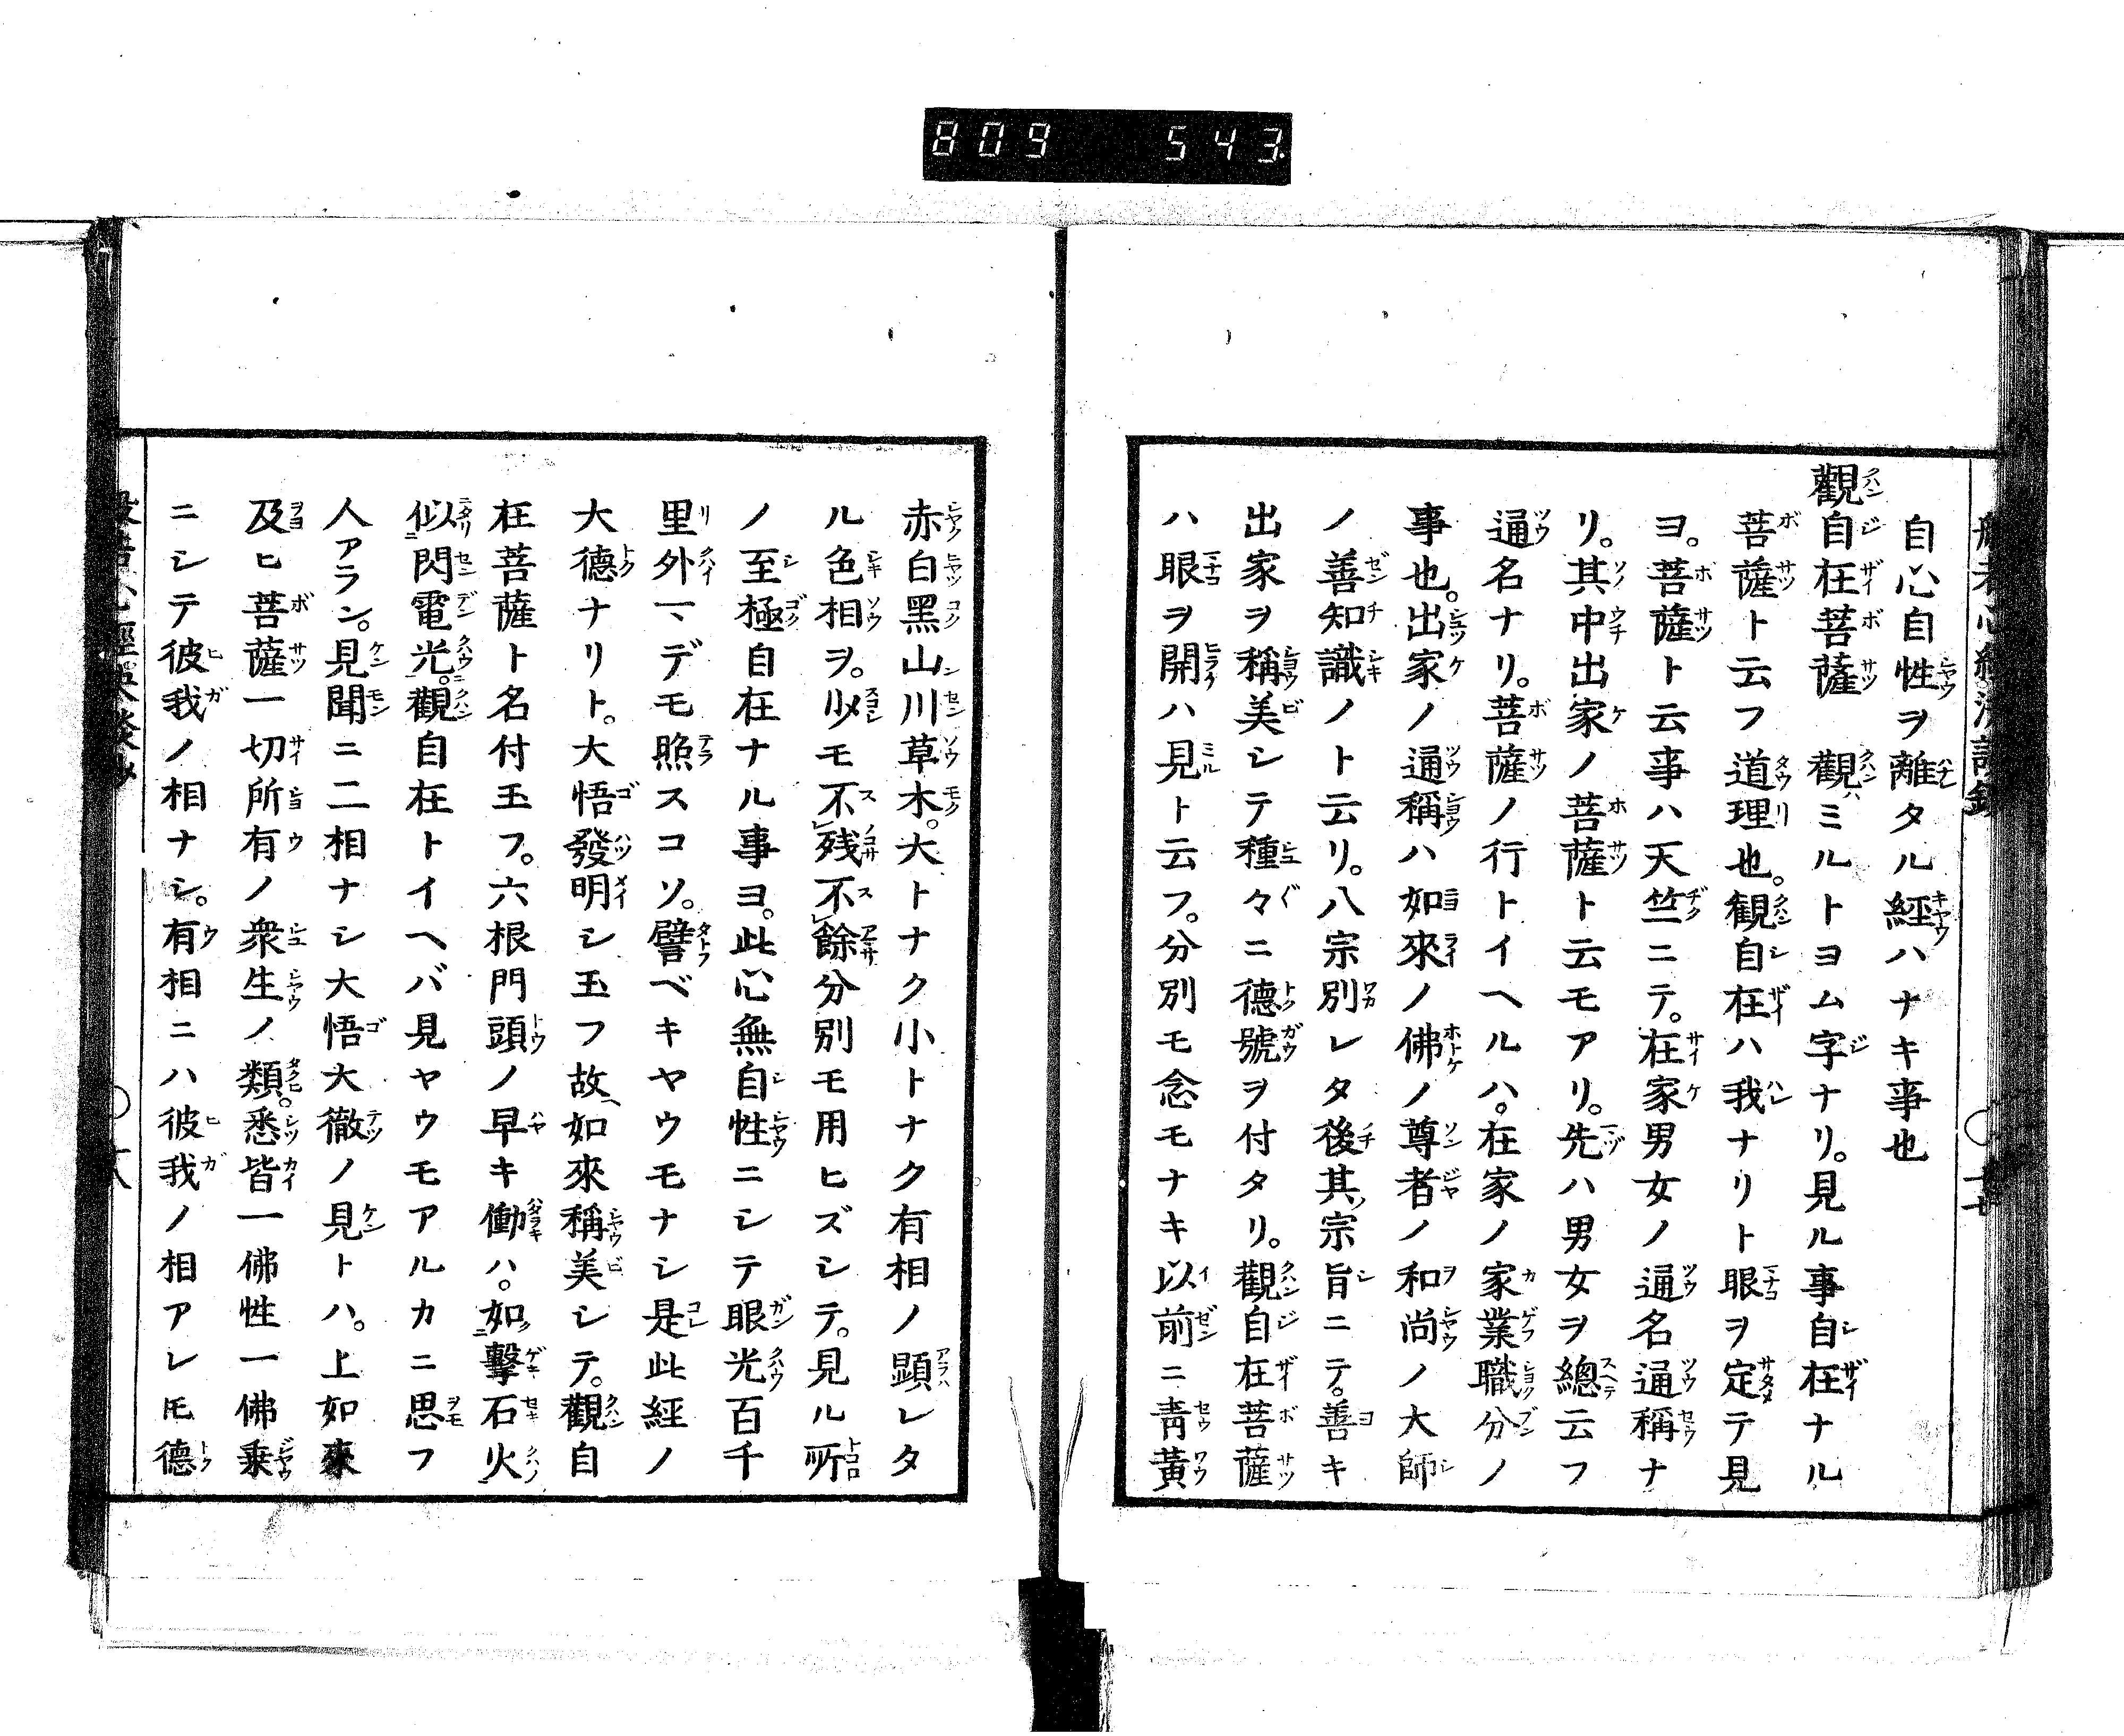 809 543
自心自性ヲ離タル経ハナキ事也
觀自在菩薩 觀ハミルトヨム字ナリ。見ル事自在ナル
菩薩ト云フ道理也。観自在ハ我ナリト眼ヲ定テ見
ヨ。菩薩ト云事ハ天竺ニテ。在家男女ノ通名通稱ナ
リ。其中出家ノ菩薩ト云モアリ。先ハ男女ヲ總云フ
通名ナリ。菩薩ノ行トイヘルハ。在家ノ家業職分ノ
事也。出家ノ通稱ハ如來ノ佛ノ尊者ノ和尚ノ大師
ノ善知識ノト云リ。八宗別レタ後其宗旨ニテ。善キ
出家ヲ稱美シテ種々ニ德號ヲ付タリ。觀自在菩薩
ハ眼ヲ開ハ見ト云フ。分別モ念モナキ以前ニ靑黃
赤白黑山川草木。大トナク小トナク有相ノ顕レタ
ル色相ヲ。少モ不残不餘分別モ用ヒズシテ。見ル所
ノ至極自在ナル事ヨ。此心無自性ニシテ眼光百千
里外マデモ照スコソ。譬ベキヤウモナシ是此経ノ
大德ナリト。大悟發明シ玉フ故如來稱美シテ。觀自
在菩薩ト名付玉フ。六根門頭ノ早キ働ハ。如擊石火
似閃電光。觀自在トイヘバ見ヤウモアルカニ思フ
人アラン。見聞ニ二相ナシ大悟大徹ノ見トハ。上如來
及ヒ菩薩一切所有ノ衆生ノ類。悉皆一佛性一佛乗
ニシテ彼我ノ相ナシ。有相ニハ彼我ノ相アレ𪜈德